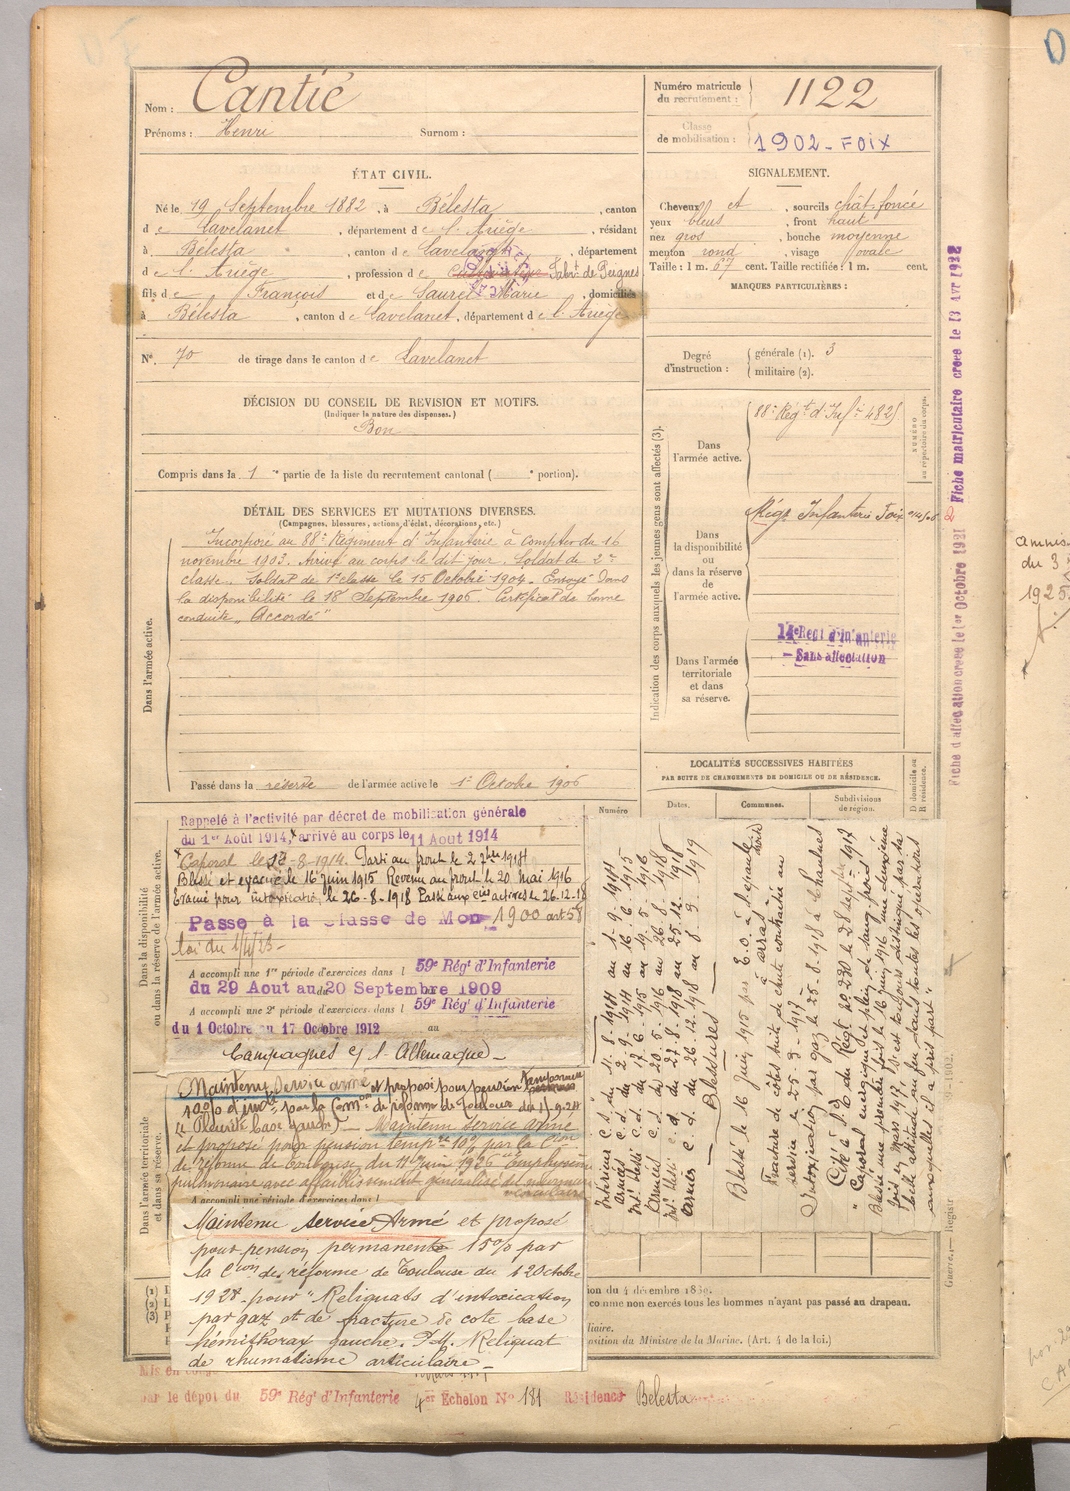 Nom : Cantié
Prénoms : Henri Surnom :
Numéro matricule du recrutement : 1122
Classe de mobilisation : 1902 - FOIX
ÉTAT CIVIL.
Né le 19 Septembre 1882, à Bélesta, canton
de Lavelanet, département de l'Ariège, résidant
à Bélesta, canton de Lavelanet, département
de l'Ariège, profession de Fabt. de Peignes
fils de François et de Laurel Marie, domiciliés
à Bélesta, canton de Lavelanet, département de l'Ariège
N° 70 de tirage dans le canton de Lavelanet
SIGNALEMENT.
Cheveux et, sourcils chât. foncé
yeux bleus, front haut
nez gros, bouche moyenne
menton rond, visage ovale
Taille : 1 m. 67 cent. Taille rectifiée : 1 m. cent.
MARQUES PARTICULIÈRES :
Degré d'instruction : générale (1). 3
militaire (2).
DÉCISION DU CONSEIL DE REVISION ET MOTIFS.
(Indiquer la nature des dispenses.)
Bon
Compris dans la 1re partie de la liste du recrutement cantonal ( portion).
DÉTAIL DES SERVICES ET MUTATIONS DIVERSES.
(Campagnes, blessures, actions d'éclat, décorations, etc.)
Dans l'armée active.
Incorporé au 88e Régiment d'Infanterie à compter du 16
novembre 1903. Arrivé au corps le dit jour. Soldat de 2e
classe. Soldat de 1e classe le 15 Octobre 1904. Envoyé dans
la disponibilité le 18 Septembre 1906. Certificat de bonne
conduite "Accordé"
Passé dans la réserve de l'armée active le 1er Octobre 1906
Indication des corps auxquels les jeunes gens sont affectés (3).
NUMÉRO au répertoire du corps.
Dans l'armée active.
88e Régt d'Infie 4825
Dans la disponibilité ou dans la réserve de l'armée active.
Régt Infanterie Foix
Dans l'armée territoriale et dans sa réserve.
14e Régt d'Infanterie
- Sans affectation
LOCALITÉS SUCCESSIVES HABITÉES
PAR SUITE DE CHANGEMENTS DE DOMICILE OU DE RÉSIDENCE.
Numéro
Dates.
Communes.
Subdivisions de région.
D domicile ou R résidence.
Dans la disponibilité ou dans la réserve de l'armée active.
Rappelé à l'activité par décret de mobilisation générale
du 1er Août 1914, arrivé au corps le 11 Août 1914
Caporal le -8-1914. Parti au front le 2 7bre 1914
Blessé et évacué le 16 juin 1915 Revenu au front le 20 mai 1916
Evacué pour intoxication le 26-8-1918 Passé aux cies actives le 26.12.18
Passé à la classe de Mon 1900 art 58
loi du 1/4/23 -
A accompli une 1re période d'exercices dans l 59e Régt d'Infanterie
du 29 Aout au 20 Septembre 1909
A accompli une 2e période d'exercices dans l 59e Régt d'Infanterie
du 1 Octobre au 17 Octobre 1912 au
Campagnes c/ l'Allemagne -
Dans l'armée territoriale et dans sa réserve.
Maintenu service armé et proposé pour pension temporaire
10% par la Comon de réforme de Toulouse du
Maintenu service armé
et proposé pour pension tempre 10% par la Cion
de réforme de Toulouse du 11 juin 1926 "Emphysème
pulmonaire avec affaiblissement généralisé du murmure
vésiculaire
A accompli une période d'exercices dans l
Maintenu service Armé et proposé
pour pension permanente 15% par
la Cion de réforme de Toulouse du 20 octobre
1928 pour "Reliquats d'intoxication
par gaz et de fracture de cote base
hémithorax gauche. P.M. Reliquat
de rhumatisme articulaire -
Intérieur c.d. du 11. 8. 1914 au 1. 9. 1914
Armées c.d. du 2. 9. 1914 au 16. 6. 1915
Int. blessé c.d. du 17. 6. 1915 au 19. 5. 1916
Armées c.d. du 20. 5. 1916 au 26. 8. 1918
Int. blessé c.d. du 27. 8. 1918 au 25. 12. 1918
Armées c.d. du 26. 12. 1918 au 8. 3. 1919
— Blessures —
Blessé le 16 juin 1915 par E.O. à l'épaule
à Arras
Fracture de côtes suite de chute contractée au
service le 25-3-1917 -
Intoxication par gaz le 25-8-1918 à Chaulnes
Cité à l'O du Régt no 230 le 28 septbre 1917
"Caporal énergique et plein de sang froid
Blessé une première fois le 16 juin 1916 une deuxième
fois en mars 1917. S'est toujours distingué par sa
belle attitude au feu dans toutes les opérations
auxquelles il a pris part"
(1)
(2)
(3)
ion du 4 décembre 18
comme non exercés tous les hommes n'ayant pas passé au drapeau.
liaire.
position du Ministre de la Marine. (Art. 4 de la loi.)
Guerre. — Registre
Mis en congé
par le dépôt du 59e Régt d'Infanterie 4er Echelon No 181 Résidence Bélesta
Fiche d'affectation créée le 1er Octobre 1921 Fiche matriculaire créée le 13 Avr 1928
amnis
du 3
1925